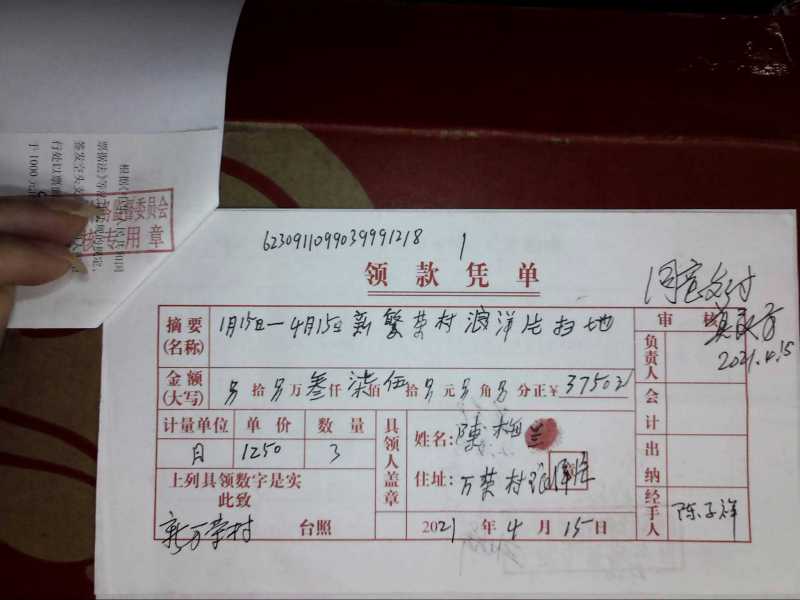 6230911099039991218
领款凭单
同意支付
摘要(名称) 1月15日—4月15日新繁荣村浪洋片扫地
审核
2021.4.15
金额(大写) 拾 万叁仟柒佰伍拾 元 角 分正¥3750
负责人
会计
出纳
经手人 陈子祥
计量单位 单价 数量
月 1250 3
具领人盖章
姓名:陈梅兰
住址:万荣村
上列具领数字是实
此致
新万荣村 台照
2021年4月15日
监督委员会
专用章
根据《
票据法》等
签发空头支
行处以票面
于1000元